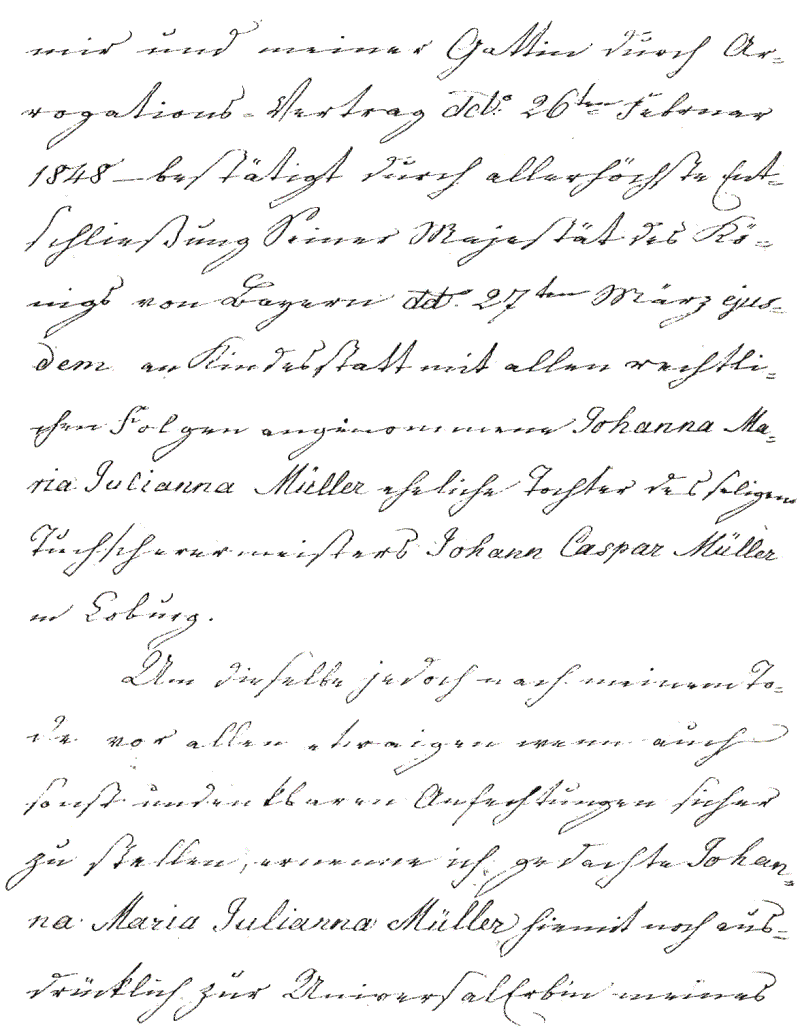 mir und meiner Gattin durch Ar-
rogations-Vertrag dd: 26ten Februar
1848 – bestätigt durch allerhöchste Ent-
schließung Seiner Majestät des Kö-
nigs von Bayern dd. 27ten März ejus-
dem an Kindesstatt mit allen rechtli-
chen Folgen angenommene Johanna Ma-
ria Julianna Müller eheliche Tochter des seligen
Tuchscherermeisters Johann Caspar Müller
in Coburg.
Um dieselbe jedoch nach meinem To-
de vor allen etwaigen wenn auch
sonst undenkbaren Anfechtungen sicher
zu stellen, ernenne ich gedachte Johan-
na Maria Julianna Müller hiemit noch aus-
drücklich zur Universalerbin meines